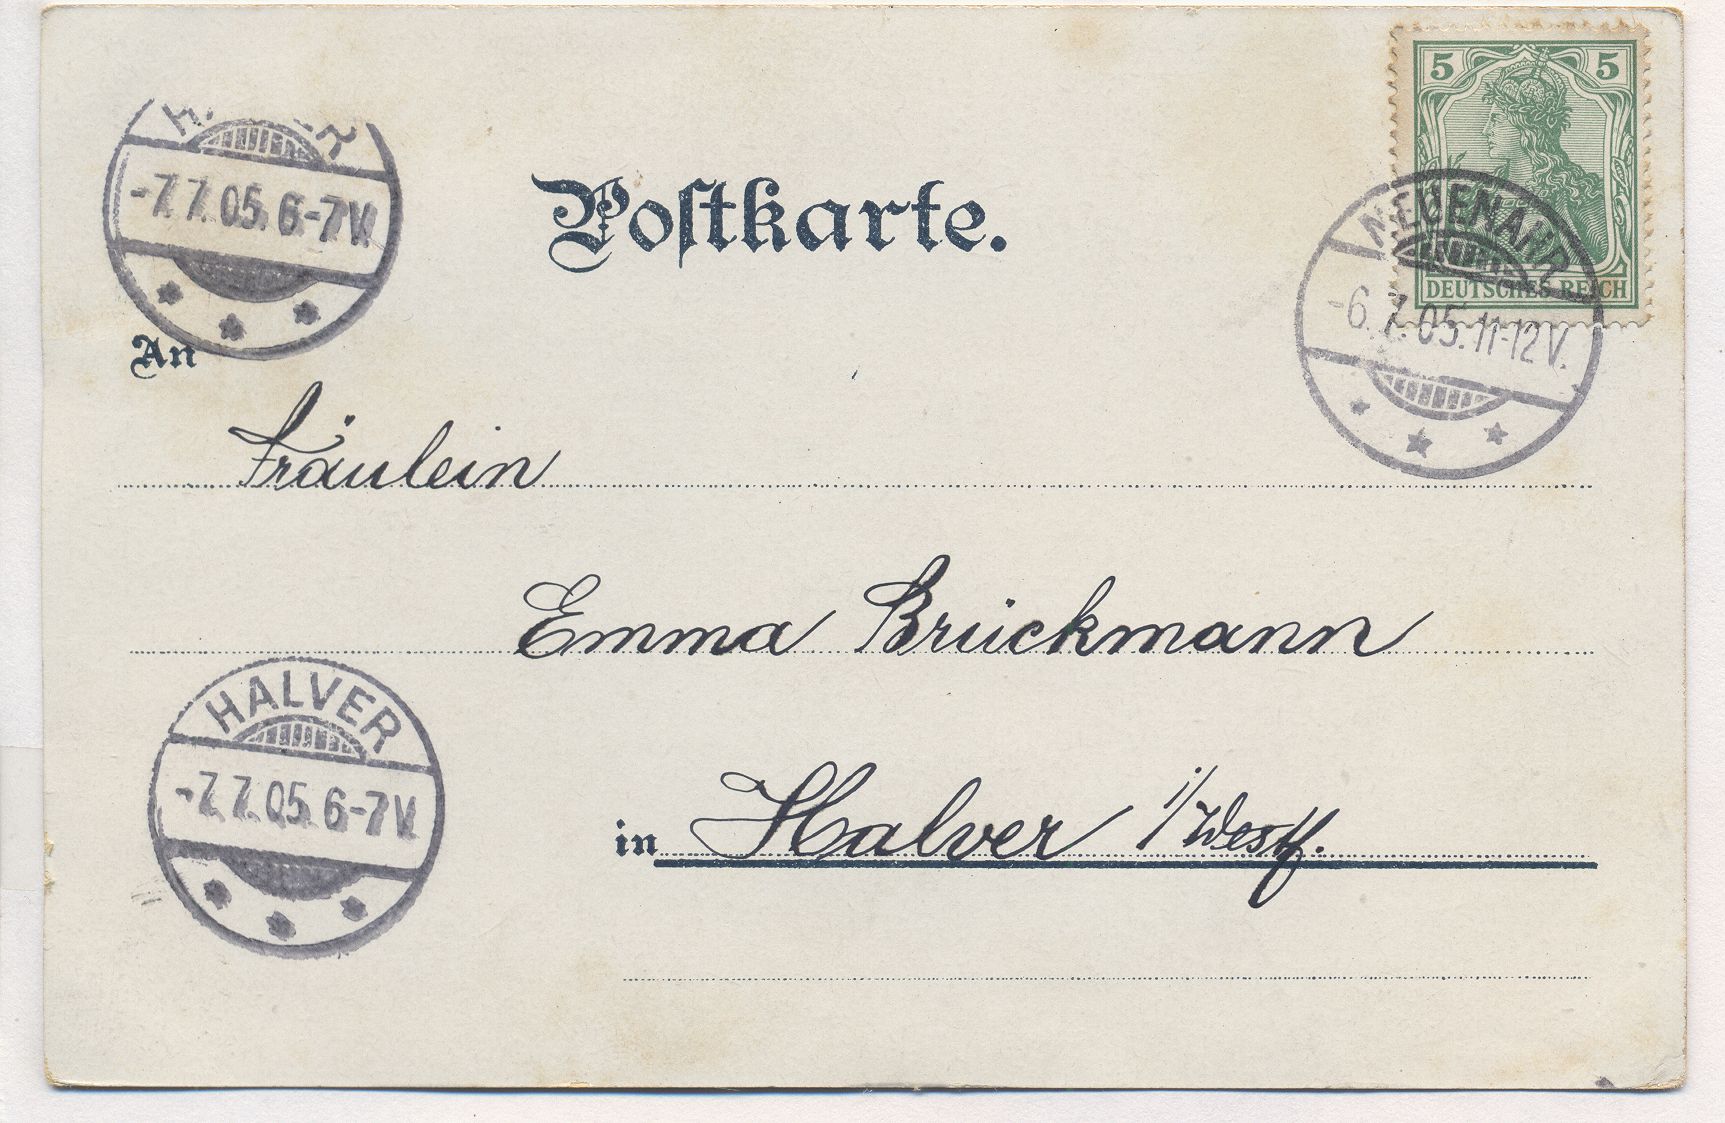 5 5
DEUTSCHES REICH
NEUENAHR
-6.7.05.11-12V.
-7.7.05.6-7V.
Postkarte.
An
Fräulein
Emma Brückmann
in Halver i/Westf.
HALVER
-7.7.05.6-7V.